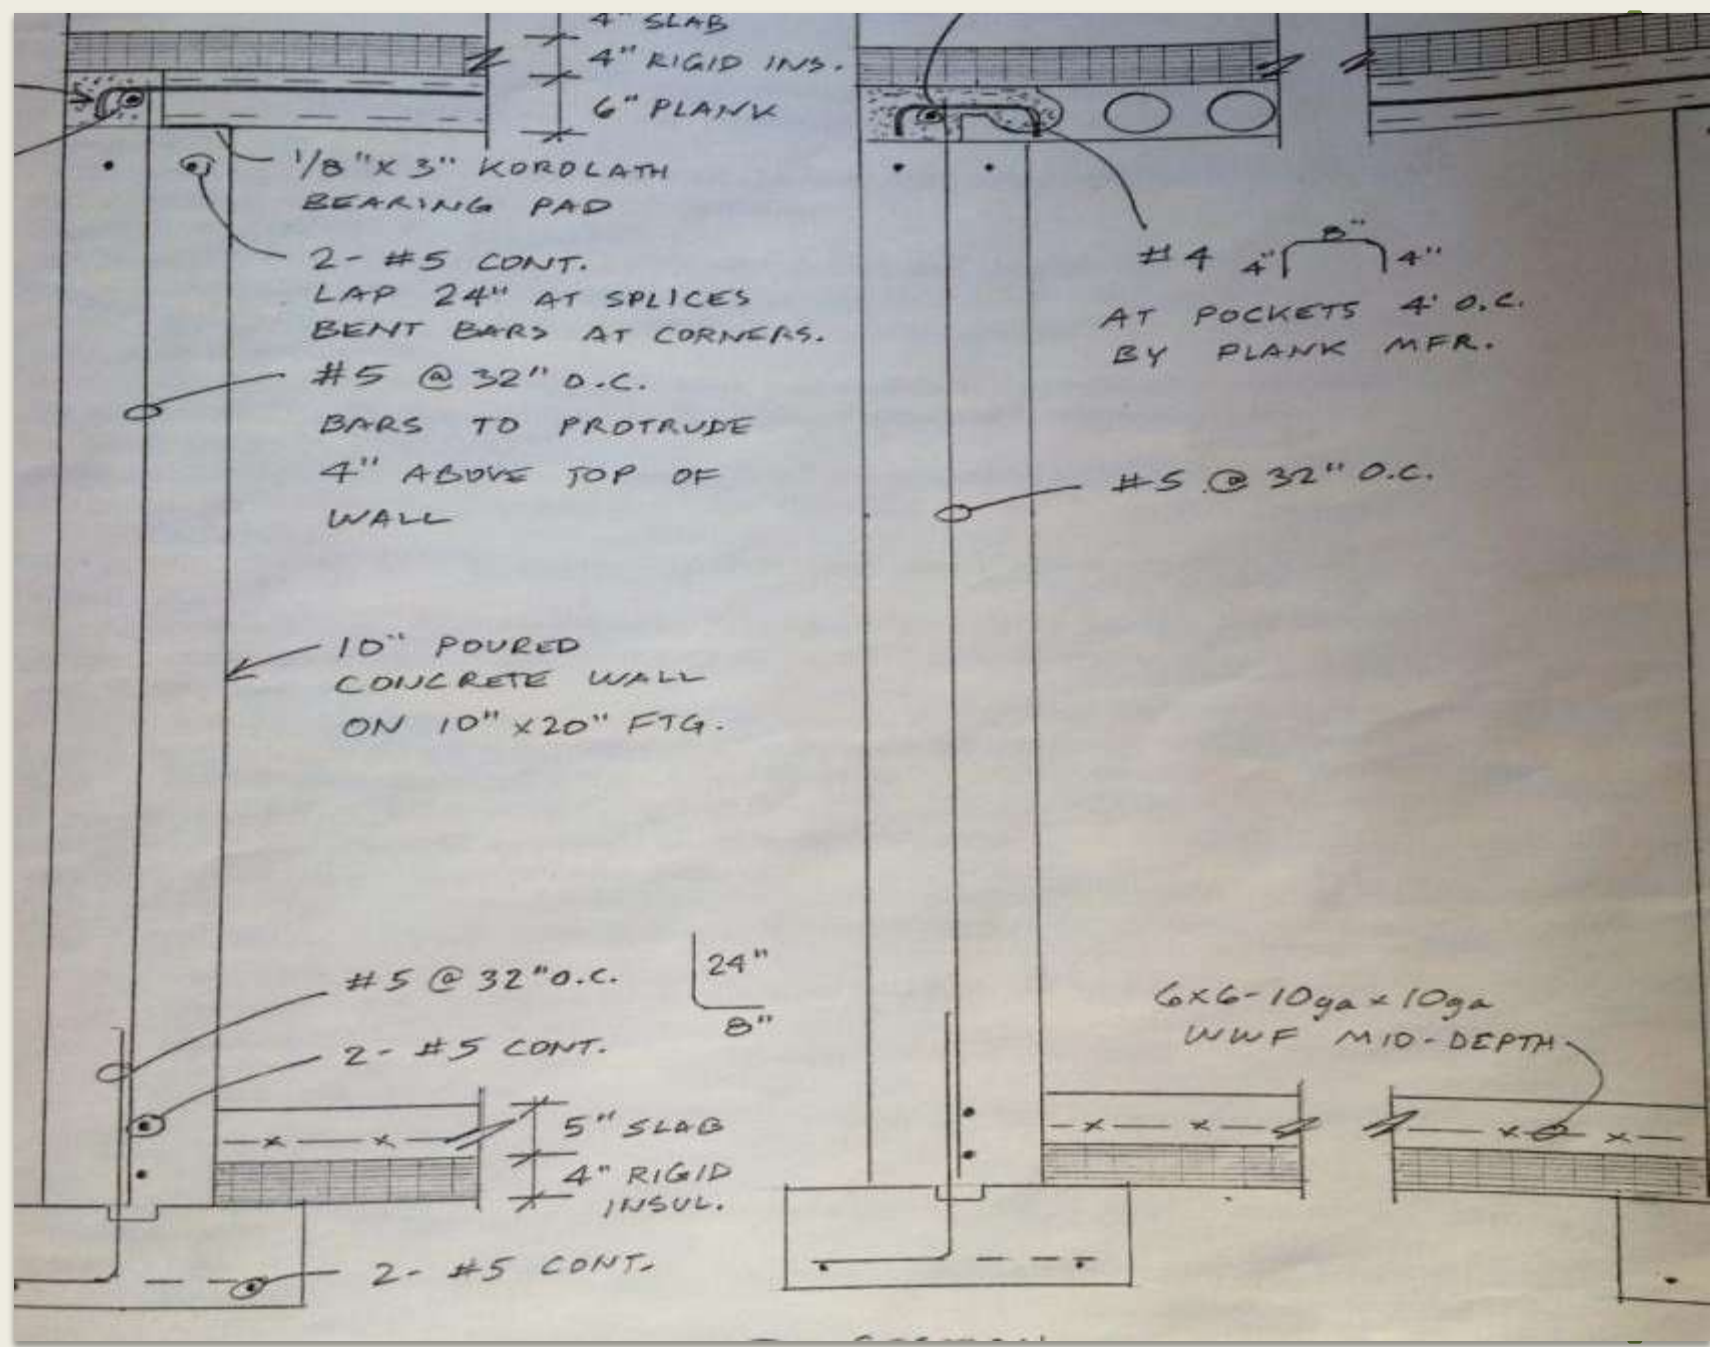 4" SLAB
4" RIGID INS.
6" PLANK
1/8" X 3" KOROLATH
BEARING PAD
2- #5 CONT.
LAP 24" AT SPLICES
BENT BARS AT CORNERS.
#5 @ 32" O.C.
BARS TO PROTRUDE
4" ABOVE TOP OF
WALL
10" POURED
CONCRETE WALL
ON 10" X 20" FTG.
#5 @ 32" O.C.
24"
8"
2- #5 CONT.
5" SLAB
4" RIGID
INSUL.
2- #5 CONT.
8"
#4 4" 4"
AT POCKETS 4' O.C.
BY PLANK MFR.
#5 @ 32" O.C.
6X6-10ga x 10ga
WWF MID-DEPTH